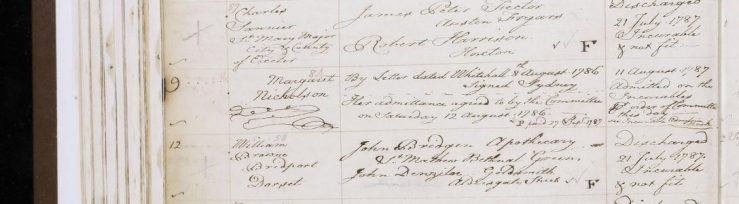 Charles
James Peter Hector
Discharged
Austin Fryars
21 July 1787
St. Mary Major
City & County
Robert Harrison
Incurable
of Exeter
Hoxton
F
& not fit
9
Margaret
By Letter dated Whitehall 8th August 1786
11 August 1787
Nicholson
Signed Sydney
Admitted on the
Her admittance agreed to by the Committee
Incurables
on Saturday 12 August 1786
order of Committee
this day
12
William
John Bredgen Apothecary
Discharged
Browne
St. Mathew Bethnal Green
21 July 1787
Bridport
John
Goldsmith
Incurable
Dorset
Aldersgate Street
F
& not fit